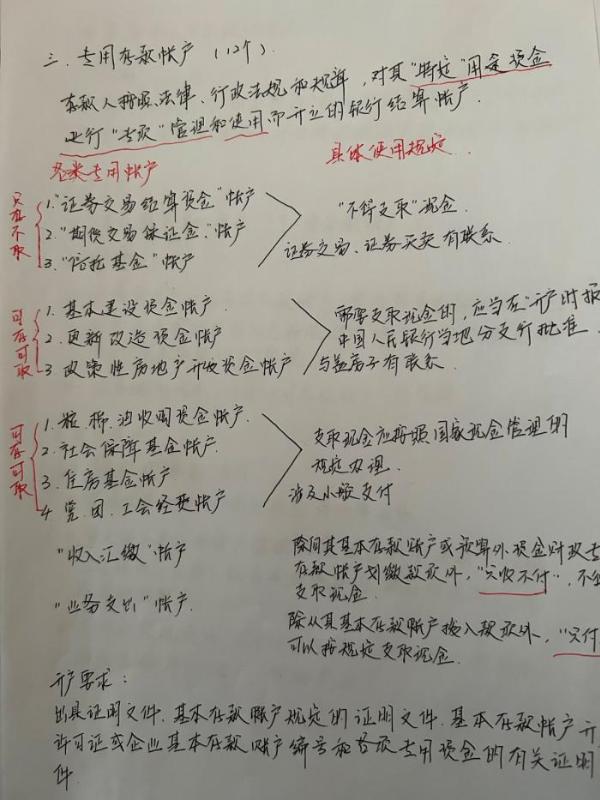 三. 专用存款帐户 (12个).
存款人按照法律、行政法规和规章, 对其"特定"用途资金
进行"专项"管理和使用而开立的银行结算帐户.
各类专用帐户
具体使用规定.
只存不取
1."证券交易结算资金"帐户
2."期货交易保证金"帐户
3."信托基金"帐户
"不得支取"现金.
证券交易、证券买卖有联系.
可存可取
1. 基本建设资金帐户.
2. 更新改造资金帐户
3 政策性房地产开发资金帐户
需要支取现金的, 应当在"开户时报
中国人民银行当地分支行批准.
与盖房子有联系.
可存可取
1. 粮、棉、油收购资金帐户.
2. 社会保障基金帐户.
3. 住房基金帐户
4 党、团、工会经费帐户
支取现金应按照国家现金管理的
规定办理.
涉及小额支付
"收入汇缴"帐户
除向其基本存款账户或预算外资金财政专
存款帐户划缴款项外, "只收不付", 不
支取现金.
"业务支出"帐户.
除从其基本存款账户拨入款项外, "只付
可以按规定支取现金.
开户要求:
出具证明文件. 基本存款账户规定的证明文件. 基本存款帐户开
许可证或企业基本存款账户编号和各项专用资金的有关证明
件.